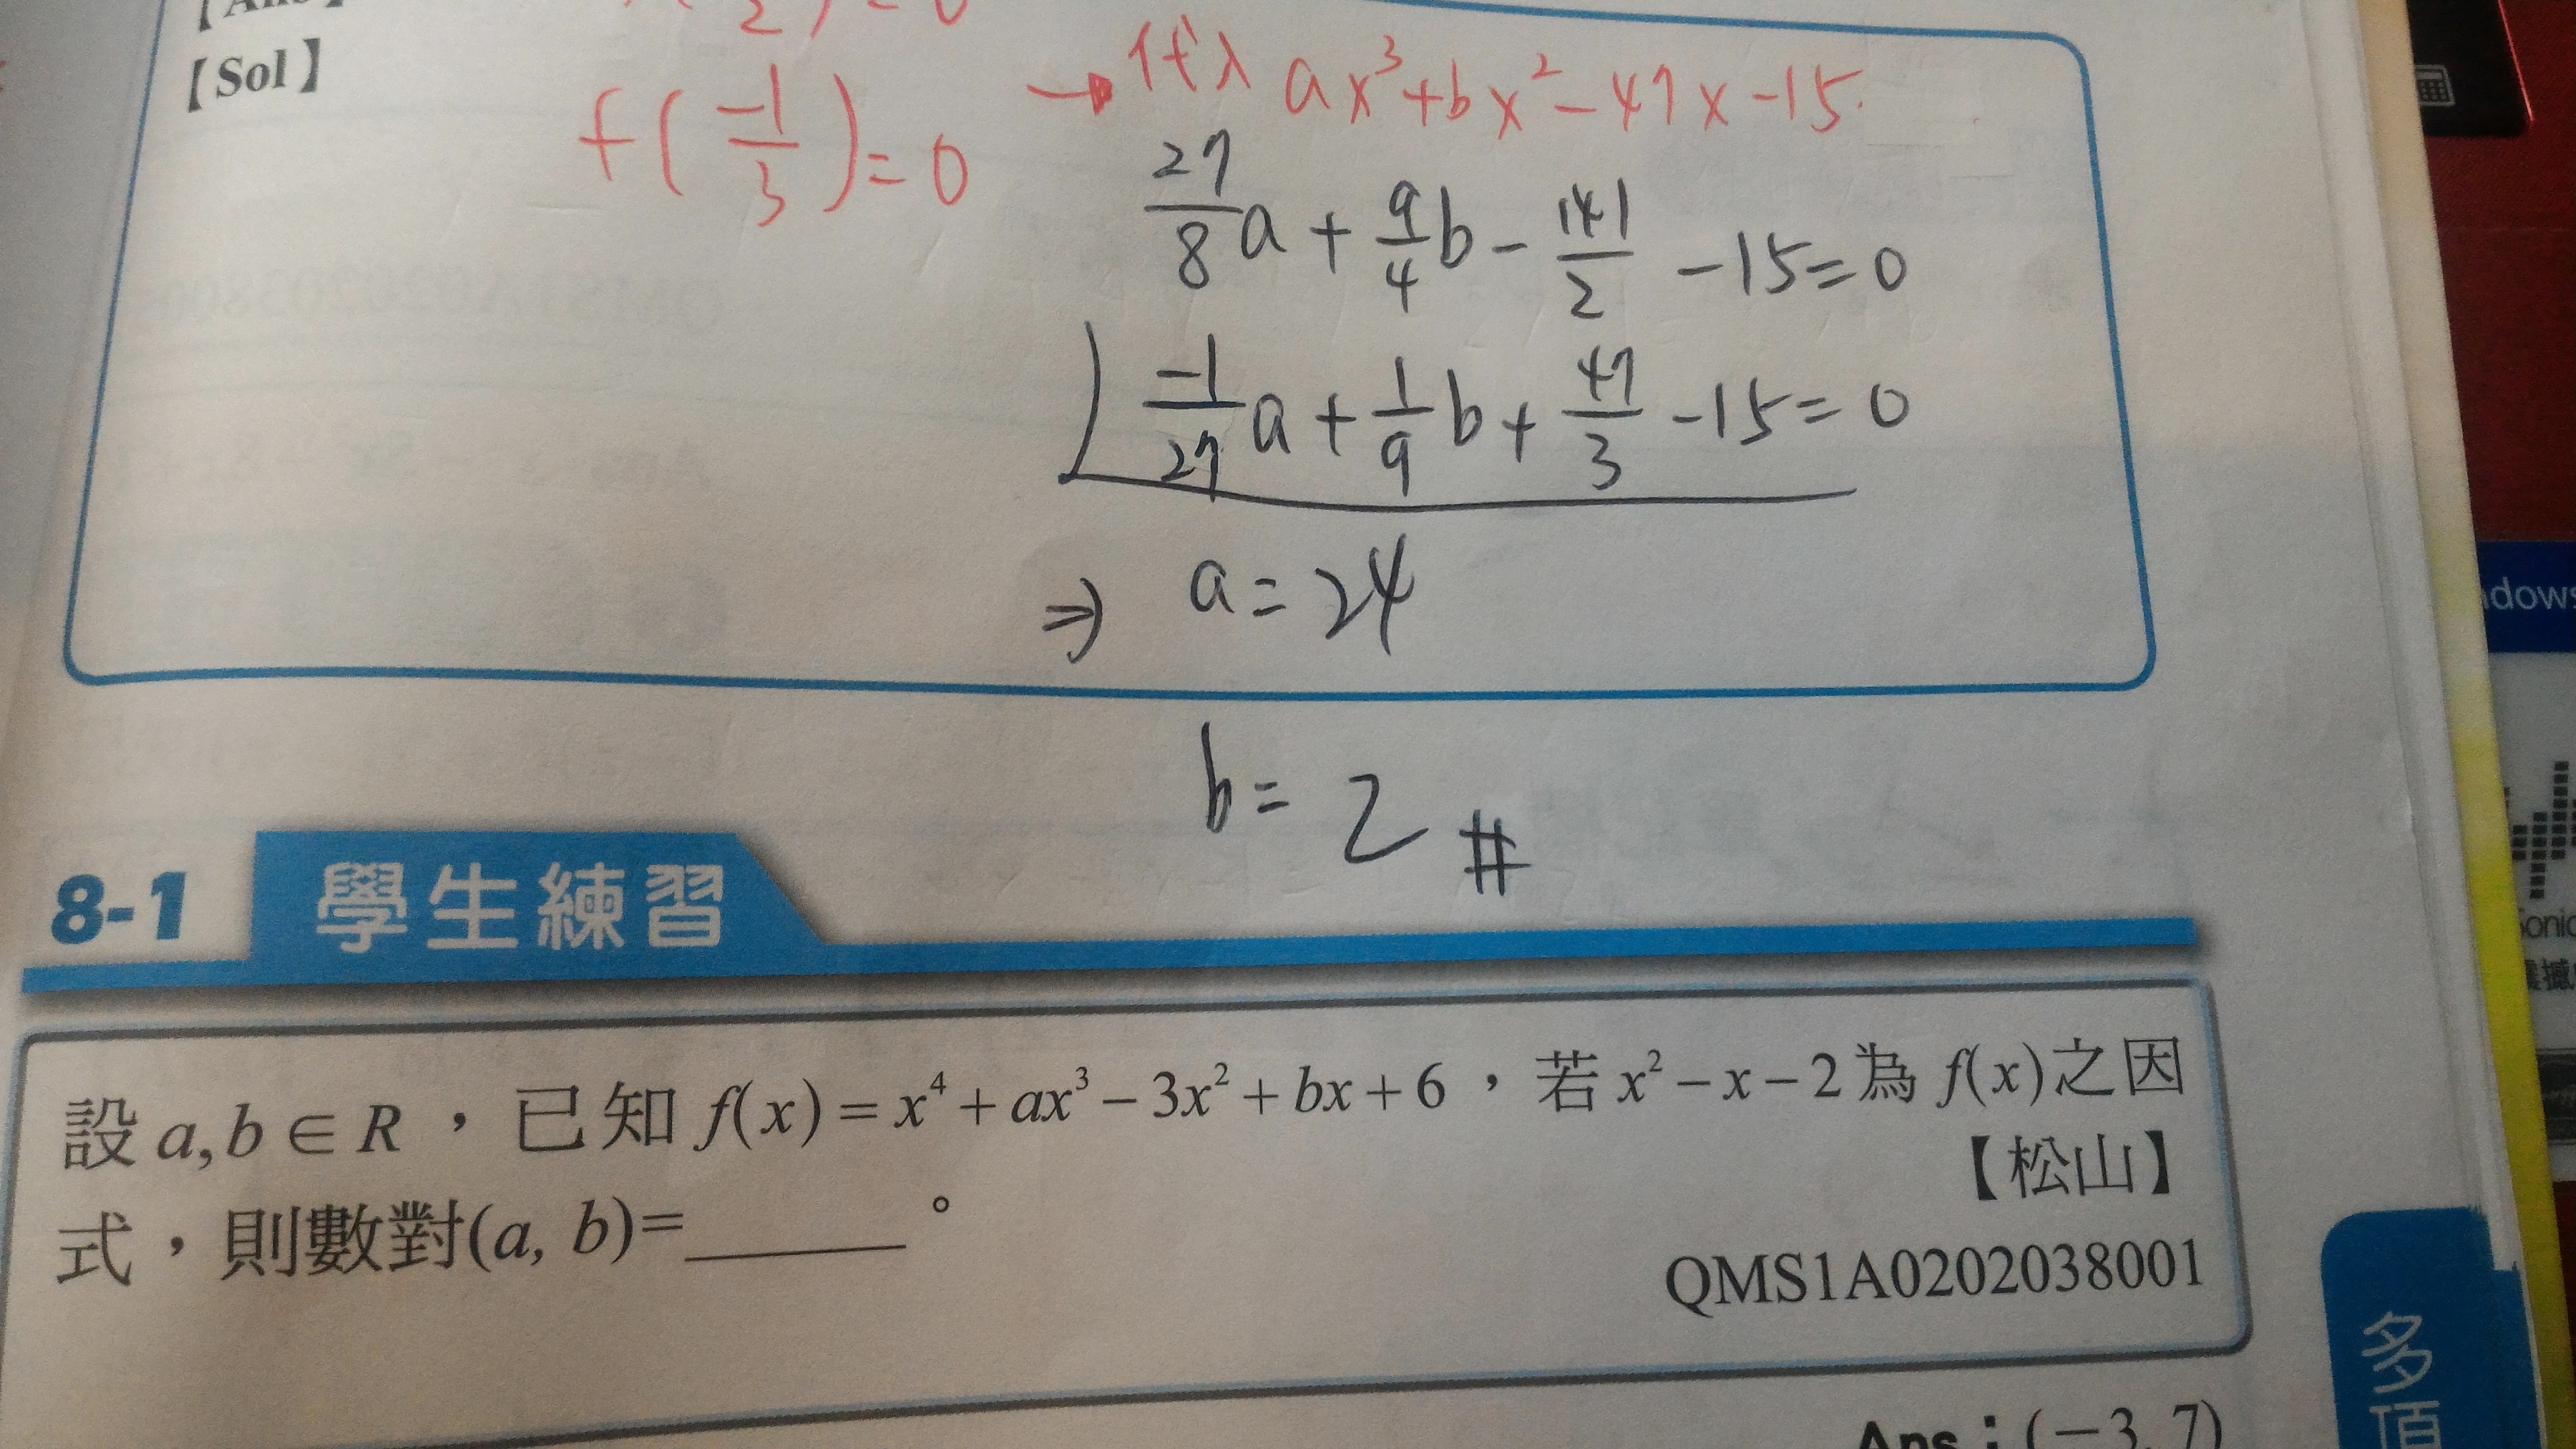 【Ans】
2) = 0
【Sol】
f(-1/3) = 0
→ 代入 ax³+bx²-47x-15
27/8 a + 9/4 b - 141/2 - 15 = 0
-1/27 a + 1/9 b + 47/3 - 15 = 0
⇒ a = 24
b = 2 #
8-1 學生練習
設 a, b ∈ R ,已知 f(x) = x⁴ + ax³ - 3x² + bx + 6 ,若 x² - x - 2 為 f(x) 之因
式,則數對(a, b)=______。 【松山】
QMS1A0202038001
Ans:(-3, 7)
多項